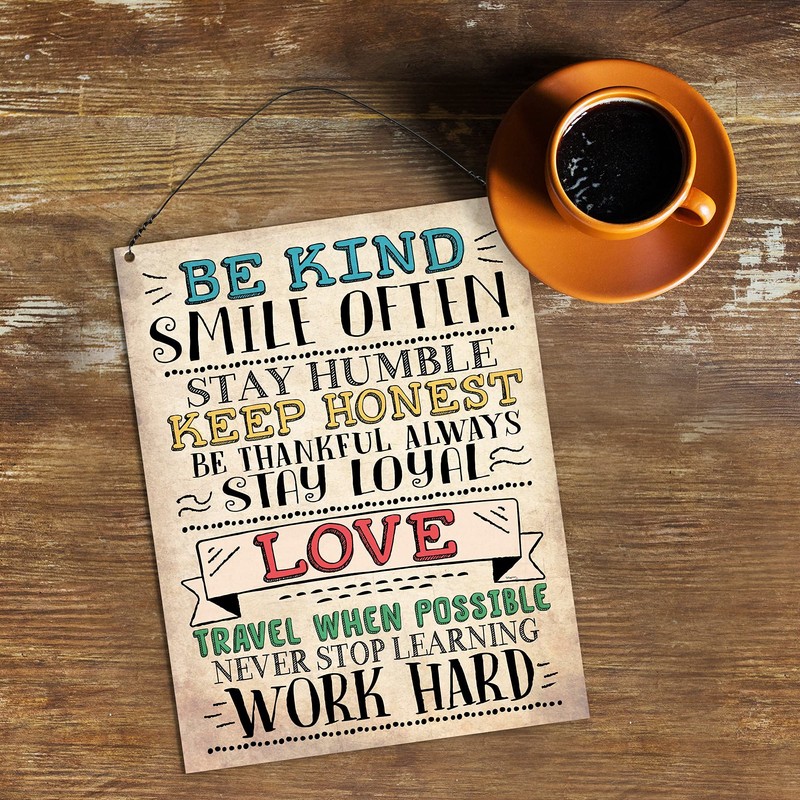 BE KIND
SMILE OFTEN
STAY HUMBLE
KEEP HONEST
BE THANKFUL ALWAYS
STAY LOYAL
LOVE
TRAVEL WHEN POSSIBLE
NEVER STOP LEARNING
WORK HARD